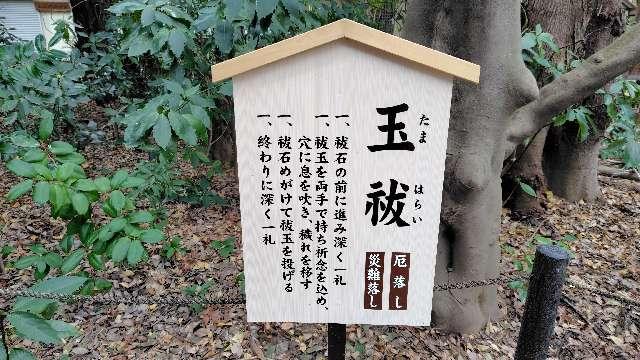 玉祓
たま
はらい
厄落し
災難落し
一、祓石の前に進み深く一礼
一、祓玉を両手で持ち祈念を込め、
穴に息を吹き、穢れを移す
一、祓石めがけて祓玉を投げる
一、終わりに深く一礼